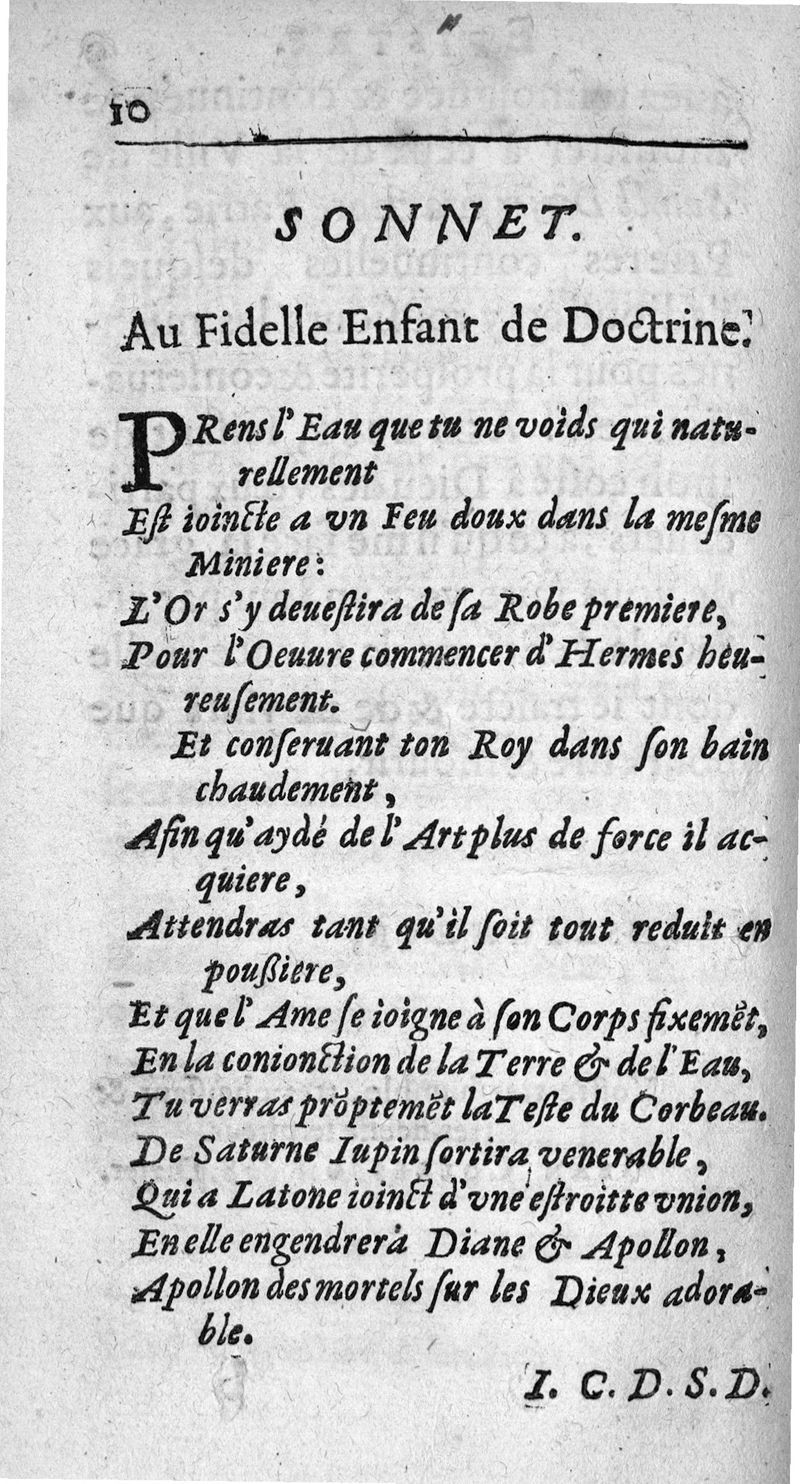 10
SONNET.
Au Fidelle Enfant de Doctrine.
PRens l'Eau que tu ne voids qui natu-
rellement
Eſt ioincte a vn Feu doux dans la meſme
Miniere:
L'Or s'y deueſtira de ſa Robe premiere,
Pour l'Oeuure commencer d'Hermes heu-
reuſement.
Et conſeruant ton Roy dans ſon bain
chaudement,
Afin qu'aydé de l'Art plus de force il ac-
quiere,
Attendras tant qu'il ſoit tout reduit en
pouſſiere,
Et que l'Ame ſe ioigne à ſon Corps fixemẽt,
En la conionction de la Terre & de l'Eau,
Tu verras prõptemẽt la Teſte du Corbeau.
De Saturne Iupin ſortira venerable,
Qui a Latone ioinct d'vne eſtroitte vnion,
En elle engendrera Diane & Apollon,
Apollon des mortels ſur les Dieux adora-
ble.
I. C. D. S. D.